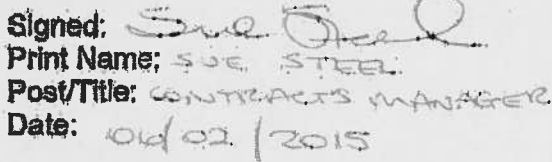 Signed: Sue Steel
Print Name: SUE STEEL
Post/Title: CONTRACTS MANAGER
Date: 06/02/2015